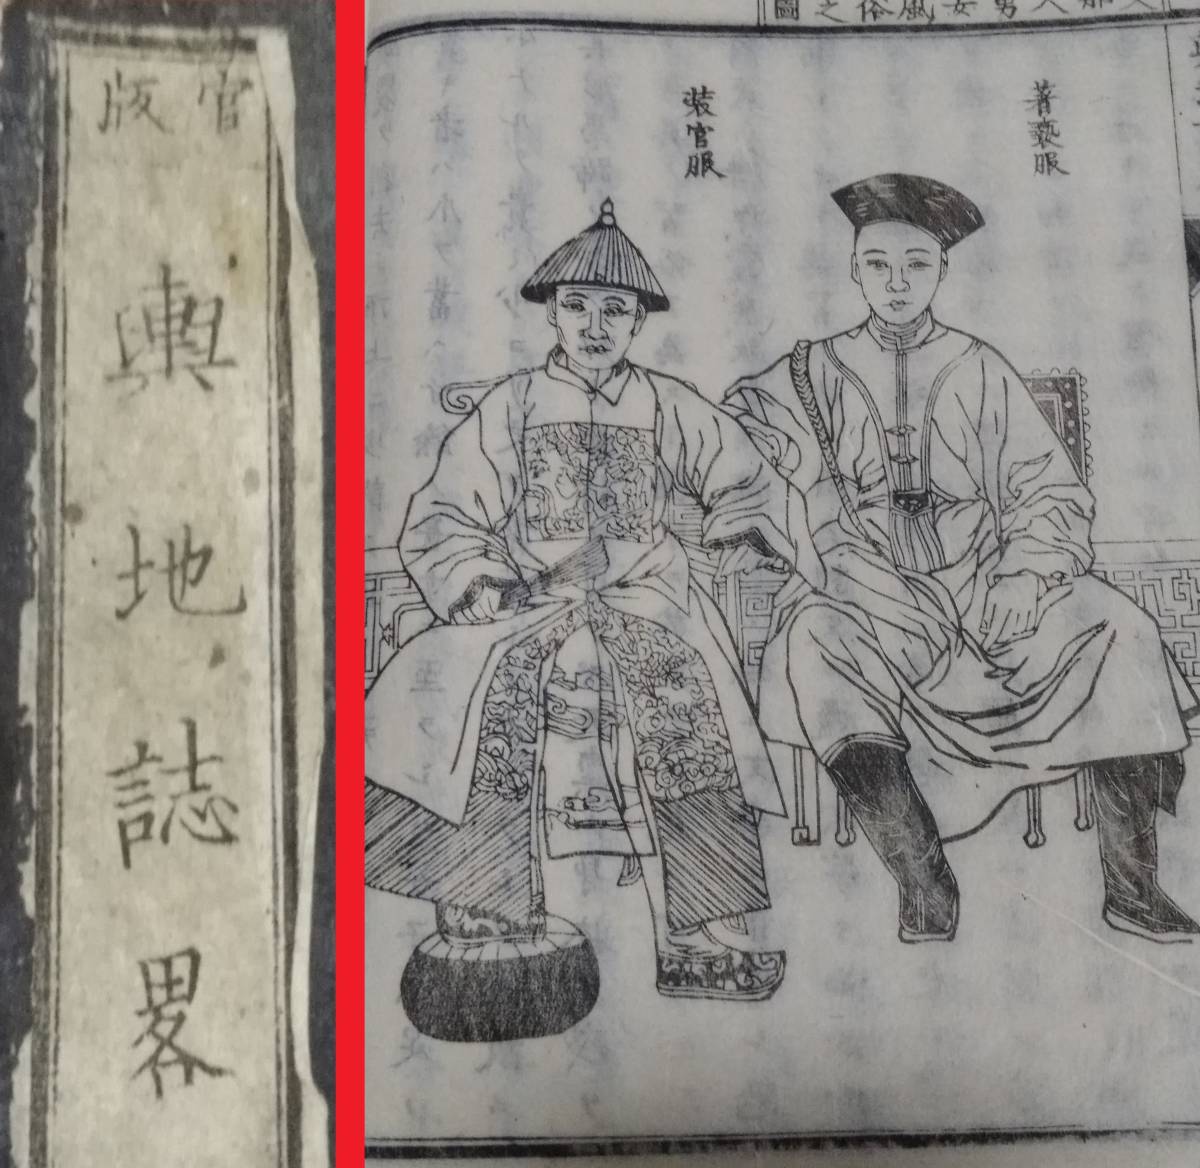 官版
輿地誌畧
那人男女風俗之圖
著褻服
装官服